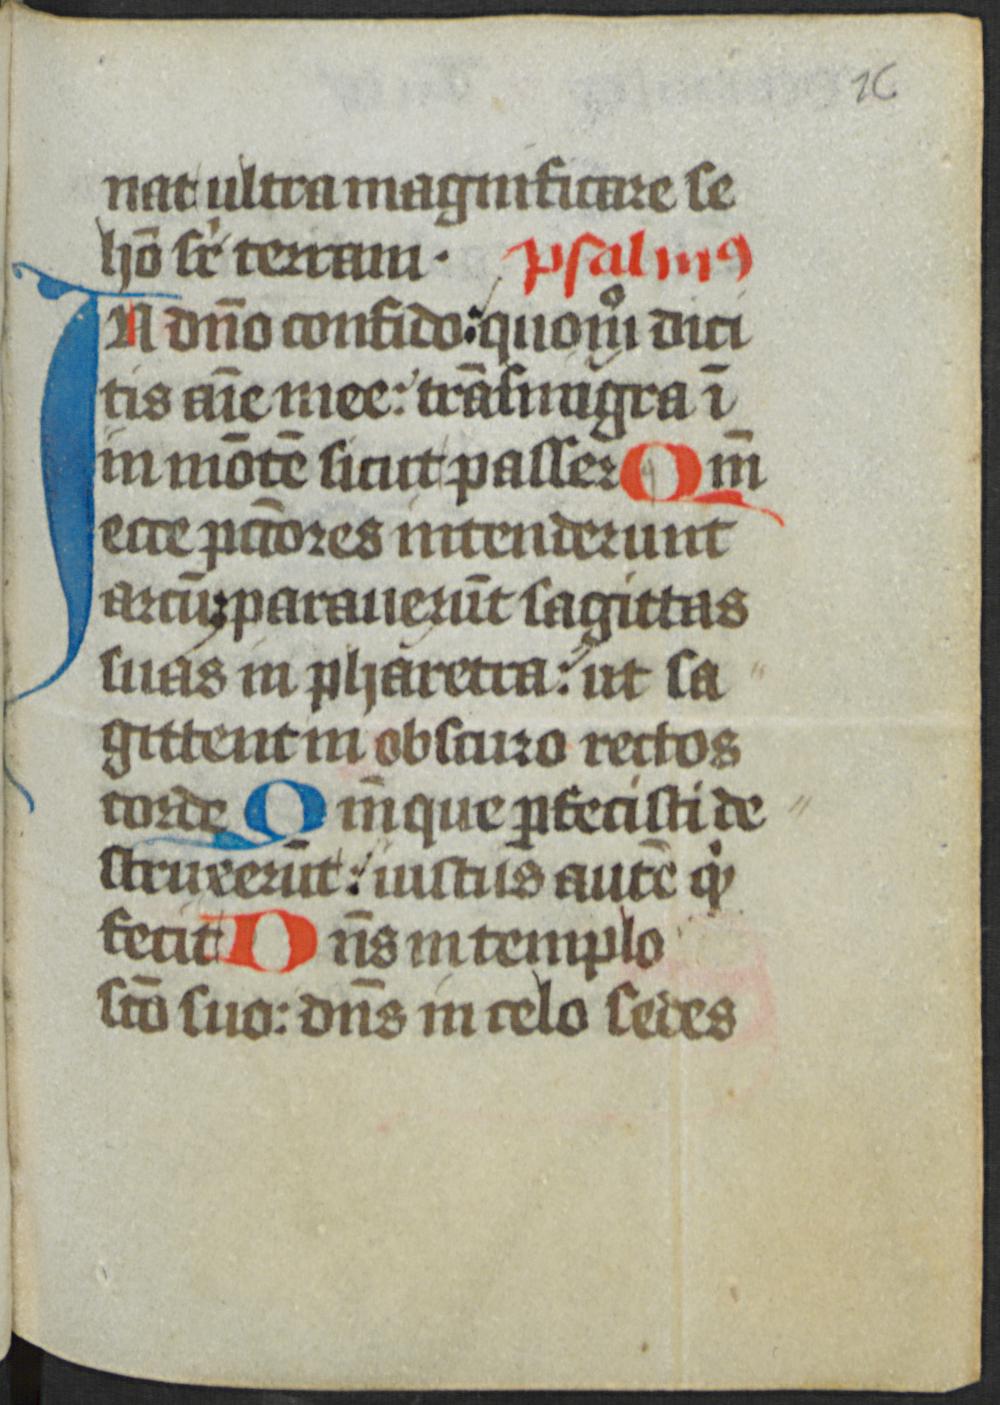 16
nat ultra magnificare se
hō sr̄ terram · psalmꝰ
IN dn̄o confido: quom̊ dici
tis aīe mee: trāsmigra ī
in mōtē sicut passer Qm̄
ecce pctōres intenderunt
arcū paraverūt sagittas
suas in pharetra: ut sa
gittent in obscuro rectos
corde Qm̄ que ꝑfecisti de
struxerūt: iustus autē qͥ
fecit Dn̄s in templo
sctō suo: dn̄s in celo sedes